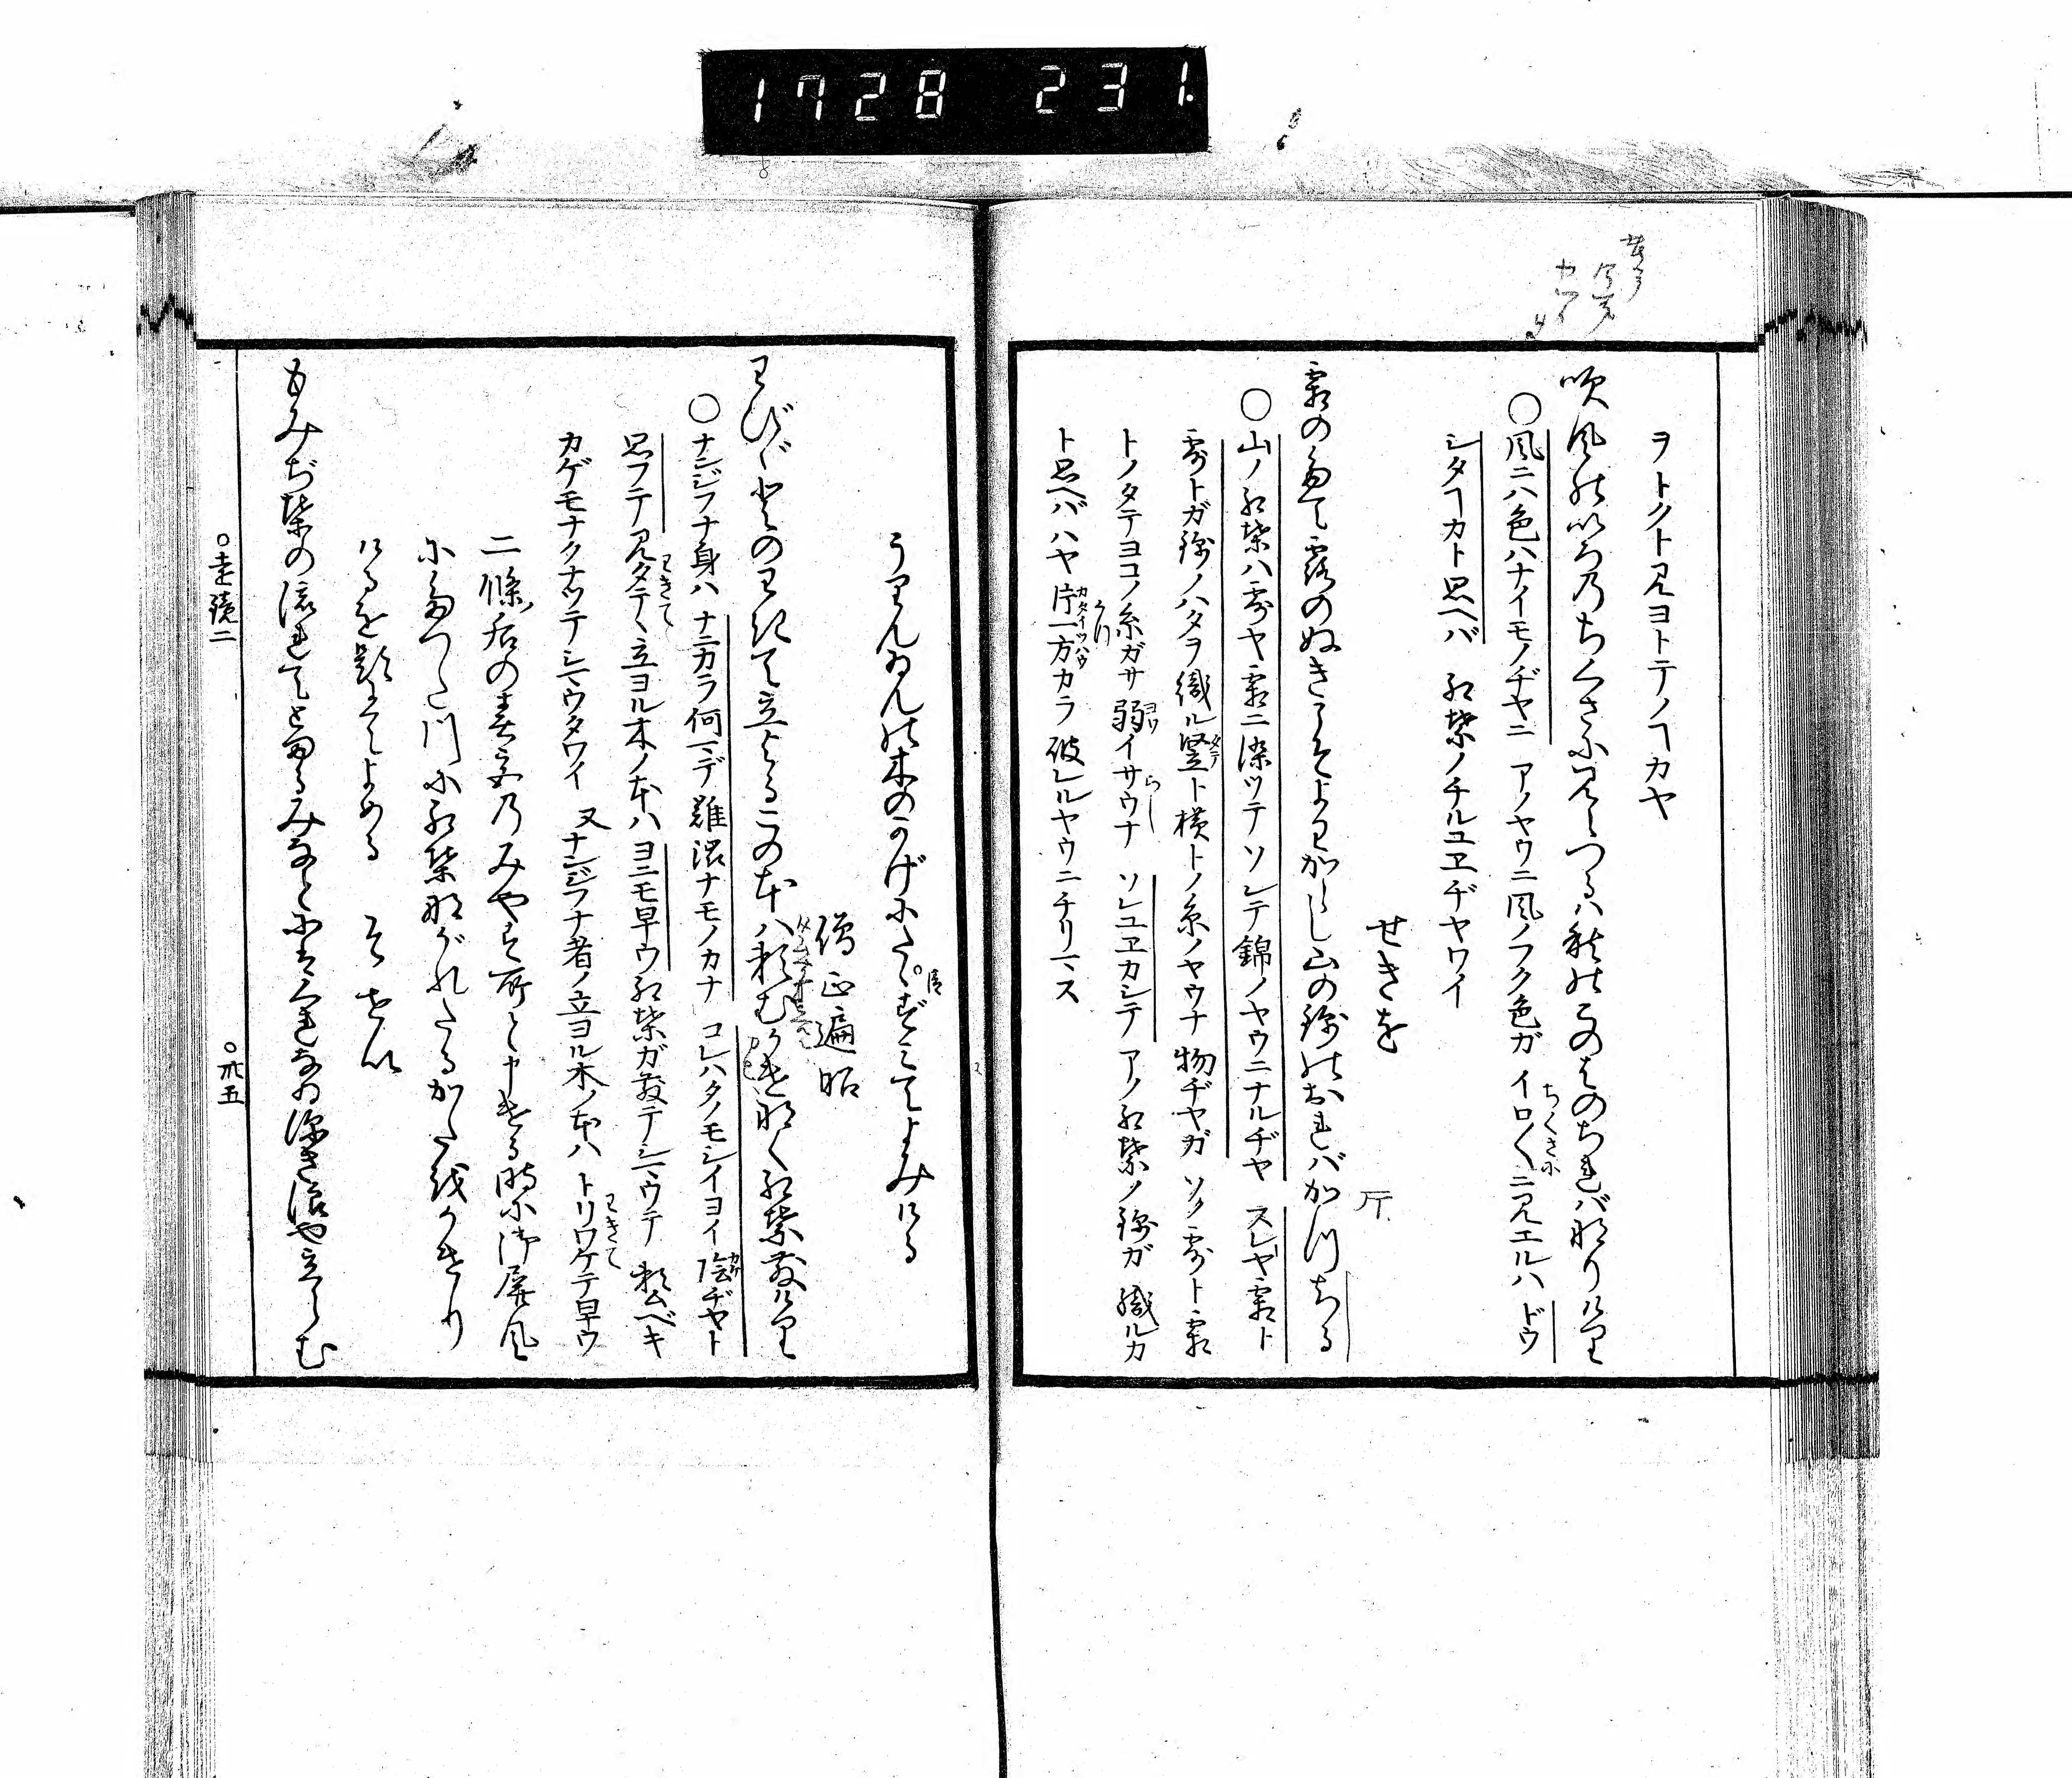 1728 231
ヲトクト見ヨトテノヿカヤ
吹風の色のちくさに見えつるは秋の木のはのちればなりけり
○風ニハ色ハナイモノヂヤニ アノヤウニ風ノフク色ガ イロ〱ニ見エルハ ドウ
ちくさに
シタヿカト思ヘバ 紅葉ノチルユヱヂヤワイ
せきを
霜のたて露のぬきこそよわからし山の錦のおればかつちる
○山ノ紅葉ハ露ヤ霜ニ染ツテ ソレテ錦ノヤウニナルヂヤ スレヤ霜ト
露トガ錦ノハタヲ織ル竪ト横トノ糸ノヤウナ 物ヂヤガ ソノ露ト霜
タテ
トノタテヨコノ糸ガサ弱イサウナ ソレユヱカシテ アノ紅葉ノ錦ガ 織ルカ
ヨワ
らし
ト思ヘバハヤ片一方カラ破レルヤウニチリマス
カタイツハウ
うりんゐんの木のかげにたゝずみてよみける
僧正遍昭
わび人のわきて立よるこの本は頼むかげなく紅葉散けり
○ナンジフナ身ハ ナニカラ何マデ難渋ナモノカナ コレハタノモシイヨイ陰ヂヤト
カゲ
思フテ見タテヽ立ヨル木ノ本ハ ヨニモ早ウ紅葉ガ散テシマウテ 頼ムベキ
わきて
カゲモナクナツテシマウタワイ 又ナンジフナ者ノ立ヨル木ノ本ハ トリワケテ早ウ
わきて
二條后の春宮のみやす所と申ける時に御屏風
にたつた川に紅葉ながれたるかたをかけり
けるを題にてよめる そせい
もみぢ葉の流れてとまるみなとには紅深き浪や立らむ
○遠鏡二
○卅五